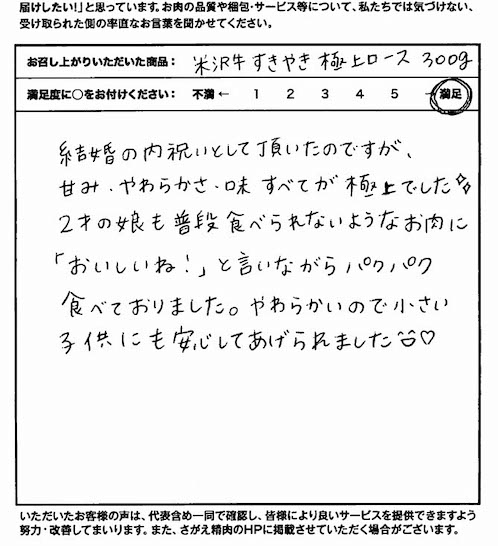 届けしたい!」と思っています。お肉の品質や梱包・サービス等について、私たちでは気づけない、
受け取られた側の率直なお言葉を聞かせてください。
お召し上がりいただいた商品： 米沢牛すきやき極上ロース 300g
満足度に○をお付けください： 不満 ← 1 2 3 4 5 → 満足
結婚の内祝いとして頂いたのですが、
甘み・やわらかさ・味 すべてが極上でした
2才の娘も普段食べられないようなお肉に
「おいしいね!」と言いながらパクパク
食べておりました。やわらかいので小さい
子供にも安心してあげられました♡
いただいたお客様の声は、代表含め一同で確認し、皆様により良いサービスを提供できますよう
努力・改善してまいります。また、さがえ精肉のHPに掲載させていただく場合がございます。